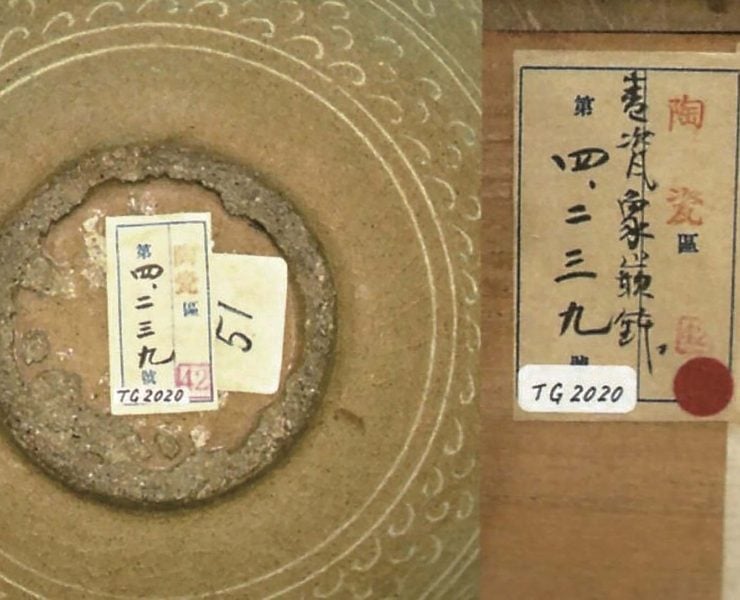 陶瓷區
第四、二三九號
42
TG2020
51
陶瓷區
青瓷象嵌鉢
第四、二三九
TG2020